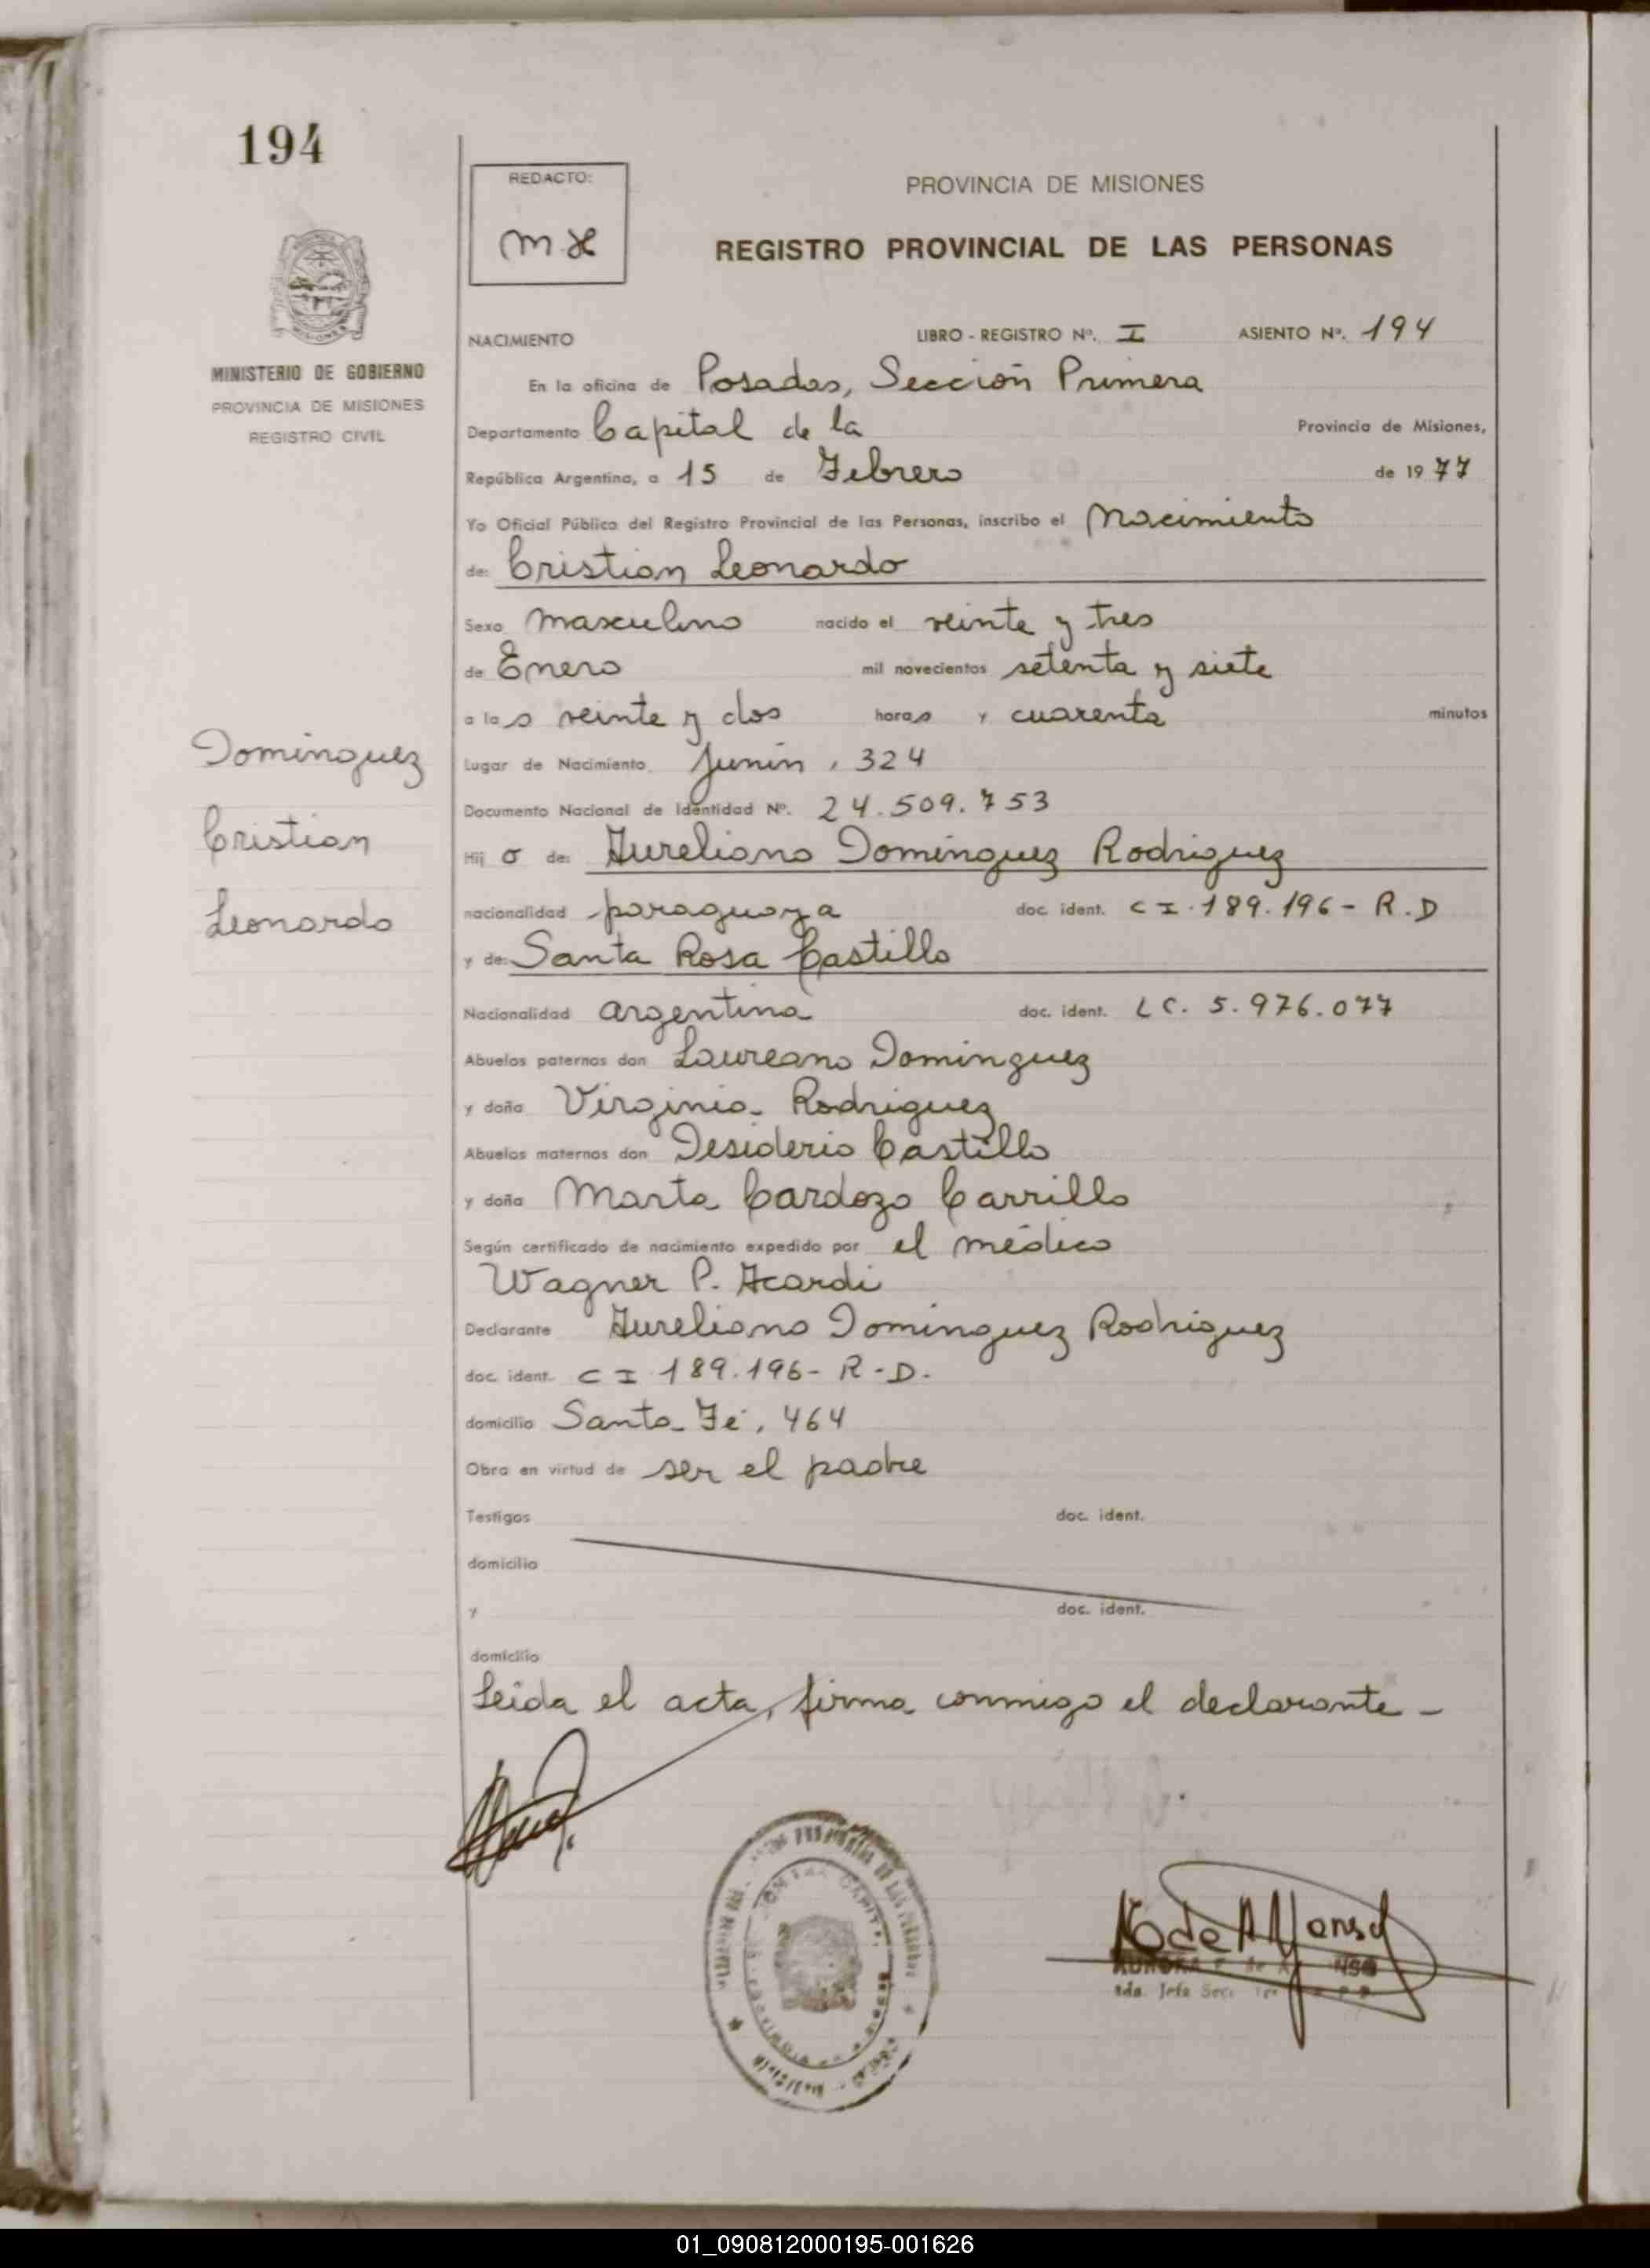 194
MINISTERIO DE GOBIERNO
PROVINCIA DE MISIONES
REGISTRO CIVIL
Dominguez
Cristian
Leonardo
REDACTO:
PROVINCIA DE MISIONES
REGISTRO PROVINCIAL DE LAS PERSONAS
NACIMIENTO LIBRO - REGISTRO Nº. I ASIENTO Nº. 194
En la oficina de Posadas, Sección Primera
Departamento Capital de la Provincia de Misiones,
República Argentina, a 15 de Febrero de 1977
Yo Oficial Público del Registro Provincial de las Personas, inscribo el Nacimiento
de: Cristian Leonardo
Sexo masculino nacido el veinte y tres
de Enero mil novecientos setenta y siete
a las veinte y dos horas y cuarenta minutos
Lugar de Nacimiento Junín, 324
Documento Nacional de Identidad Nº. 24.509.753
Hijo de: Aureliano Dominguez Rodriguez
nacionalidad paraguaya doc. ident. CI.189.196- R.D
y de: Santa Rosa Castillo
Nacionalidad argentina doc. ident. LC. 5.976.077
Abuelos paternos don Laureano Dominguez
y doña Virginia Rodriguez
Abuelos maternos don Desiderio Castillo
y doña Marta Cardozo Carrillo
Según certificado de nacimiento expedido por el médico
Wagner P. Acardi
Declarante Aureliano Dominguez Rodriguez
doc. ident. CI 189.196- R-D.
domicilio Santa Fé, 464
Obra en virtud de ser el padre
Testigos doc. ident.
domicilio
y doc. ident.
domicilio
Leida el acta, firma conmigo el declarante -
01_090812000195-001626